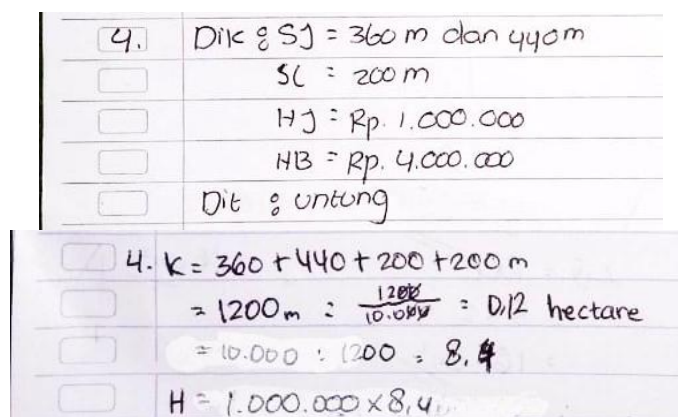 4. Dik : SJ = 360 m dan 440 m
SC = 200 m
HJ = Rp. 1.000.000
HB = Rp. 4.000.000
Dit : untung
4. K = 360 + 440 + 200 + 200 m
= 1200 m : 1200/10.000 = 0,12 hectare
= 10.000 : 1200 = 8,4
H = 1.000.000 x 8,4